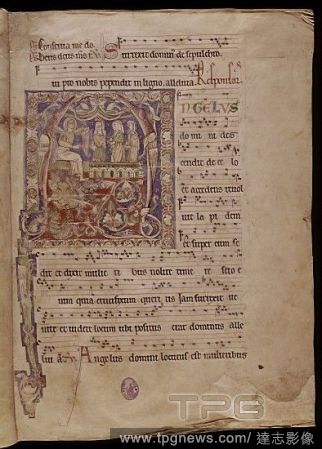 Surrexit dominus de sepulchro
in pro nobis pependit in ligno alleluia Responsor
NGELUS
domini des
cendit de ce lo
et accedens revol
vit la pi dem
et super eum se
dit et dixit mulie ri bus nolite time re scio e
nim quia crucifixum queri tis Iam surrexit ve
nite et videte locum ubi positus erat dominus alle
lu a Angelus domini locutus est mulieribus
TPG
www.tpgnews.com / 達志影像